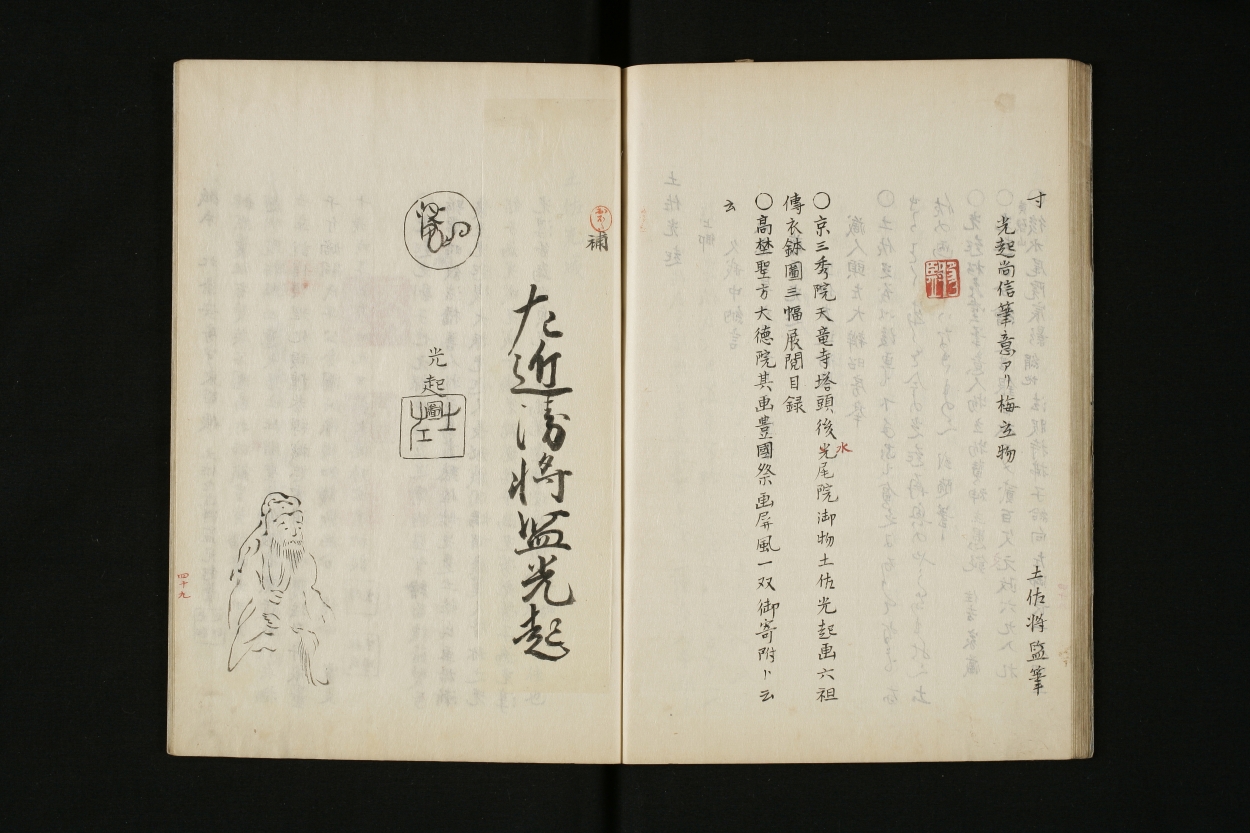 寸 土佐将監筆
光起尚信筆意アリ梅立物
〇京三秀院天竜寺塔頭後光尾院御物土佐光起画六祖
水
傳衣鉢圖三幅展閲目録
〇高埜聖方大徳院其画豊國祭画屏風一双御寄附ト云
云
補
左近将監光起
光起
土佐
四十九